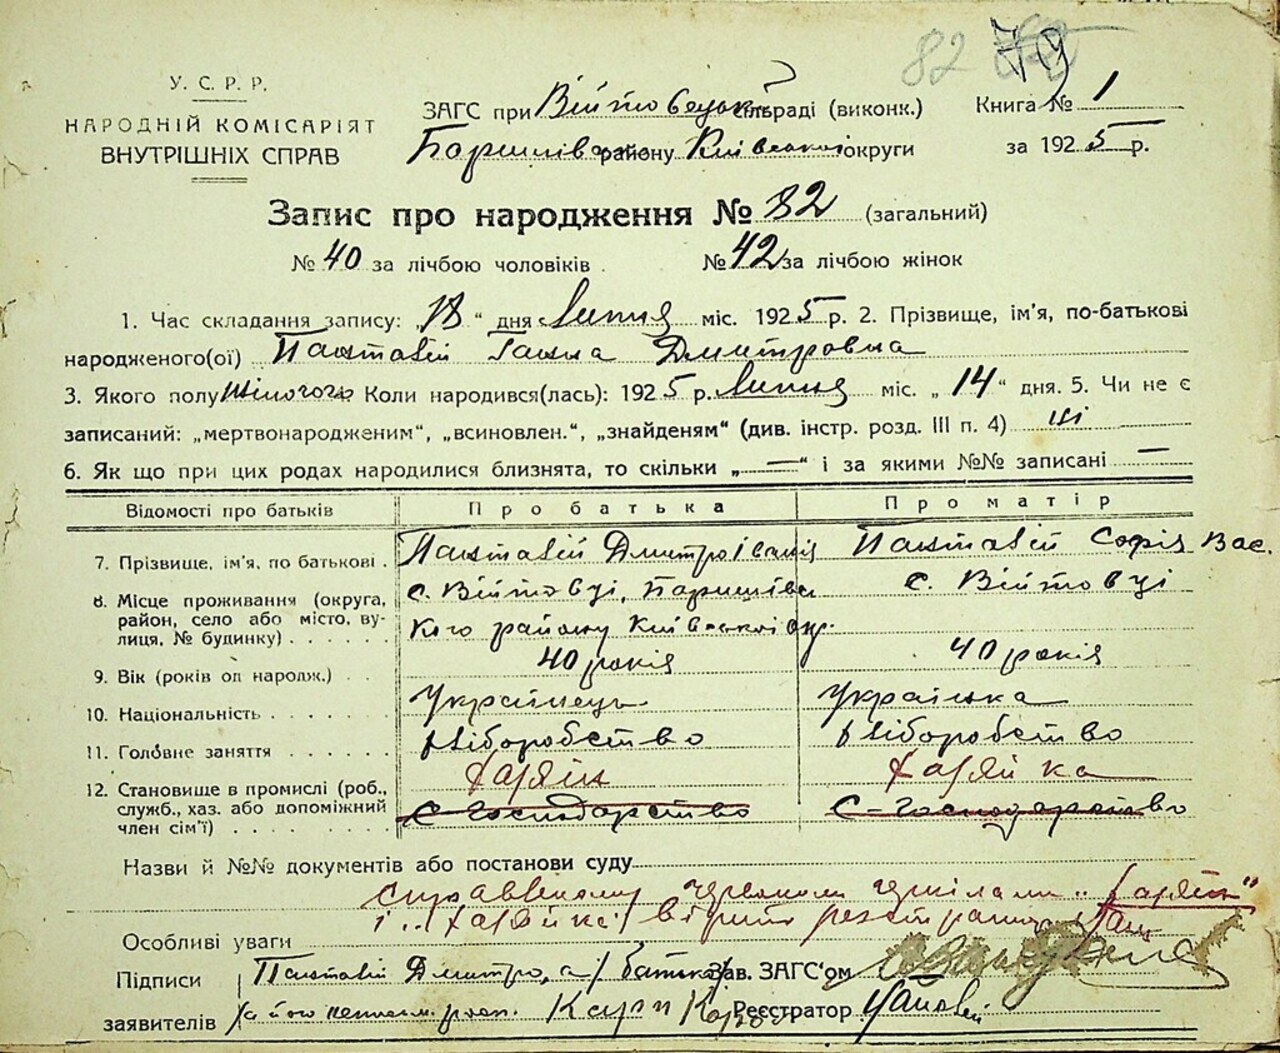 82 79
У. С. Р. Р.
НАРОДНІЙ КОМІСАРІЯТ
ВНУТРІШНІХ СПРАВ
ЗАГС при Війтовецькій сільраді (виконк.) Книга № 1
району Київської округи за 1925 р.
Запис про народження № 82 (загальний)
№ 40 за лічбою чоловіків . № 42 за лічбою жінок
1. Час складання запису: „18“ дня Липня міс. 1925 р. 2. Прізвище, ім'я, по-батькові
народженого(ої) Ганна Дмитровна
3. Якого полу жіночого Коли народився(лась): 1925 р. Липня міс. „14“ дня. 5. Чи не є
записаний: „мертвонародженим“, „всиновлен.“, „знайденям“ (див. інстр. розд. III п. 4) ні
6. Як що при цих родах народилися близнята, то скільки „—“ і за якими №№ записані —
Відомості про батьків Про батька Про матір
7. Прізвище, ім'я, по батькові . Дмитро Іванів Софія Вас.
8. Місце проживання (округа, район, село або місто, вулиця, № будинку) . . . . . . с. Війтовці, Баришівського району Київської окр. с. Війтовці
9. Вік (років од народж.) . . 40 років 40 років
10. Національність . . . . . . . Українець Українка
11. Головне заняття . . . . . . Хліборобство Хліборобство
12. Становище в промислі (роб., служб., хаз. або допоміжний член сім'ї) . . . . . . . . . Хазяїн С-господарство Хазяйка С-господарство
Назви й №№ документів або постанови суду
червоном чернілами „Хазяїн“
і „Хазяйка“ вірить
Особливі уваги
Підписи Дмитро, а Зав. ЗАГС'ом
заявителів Карп Реєстратор